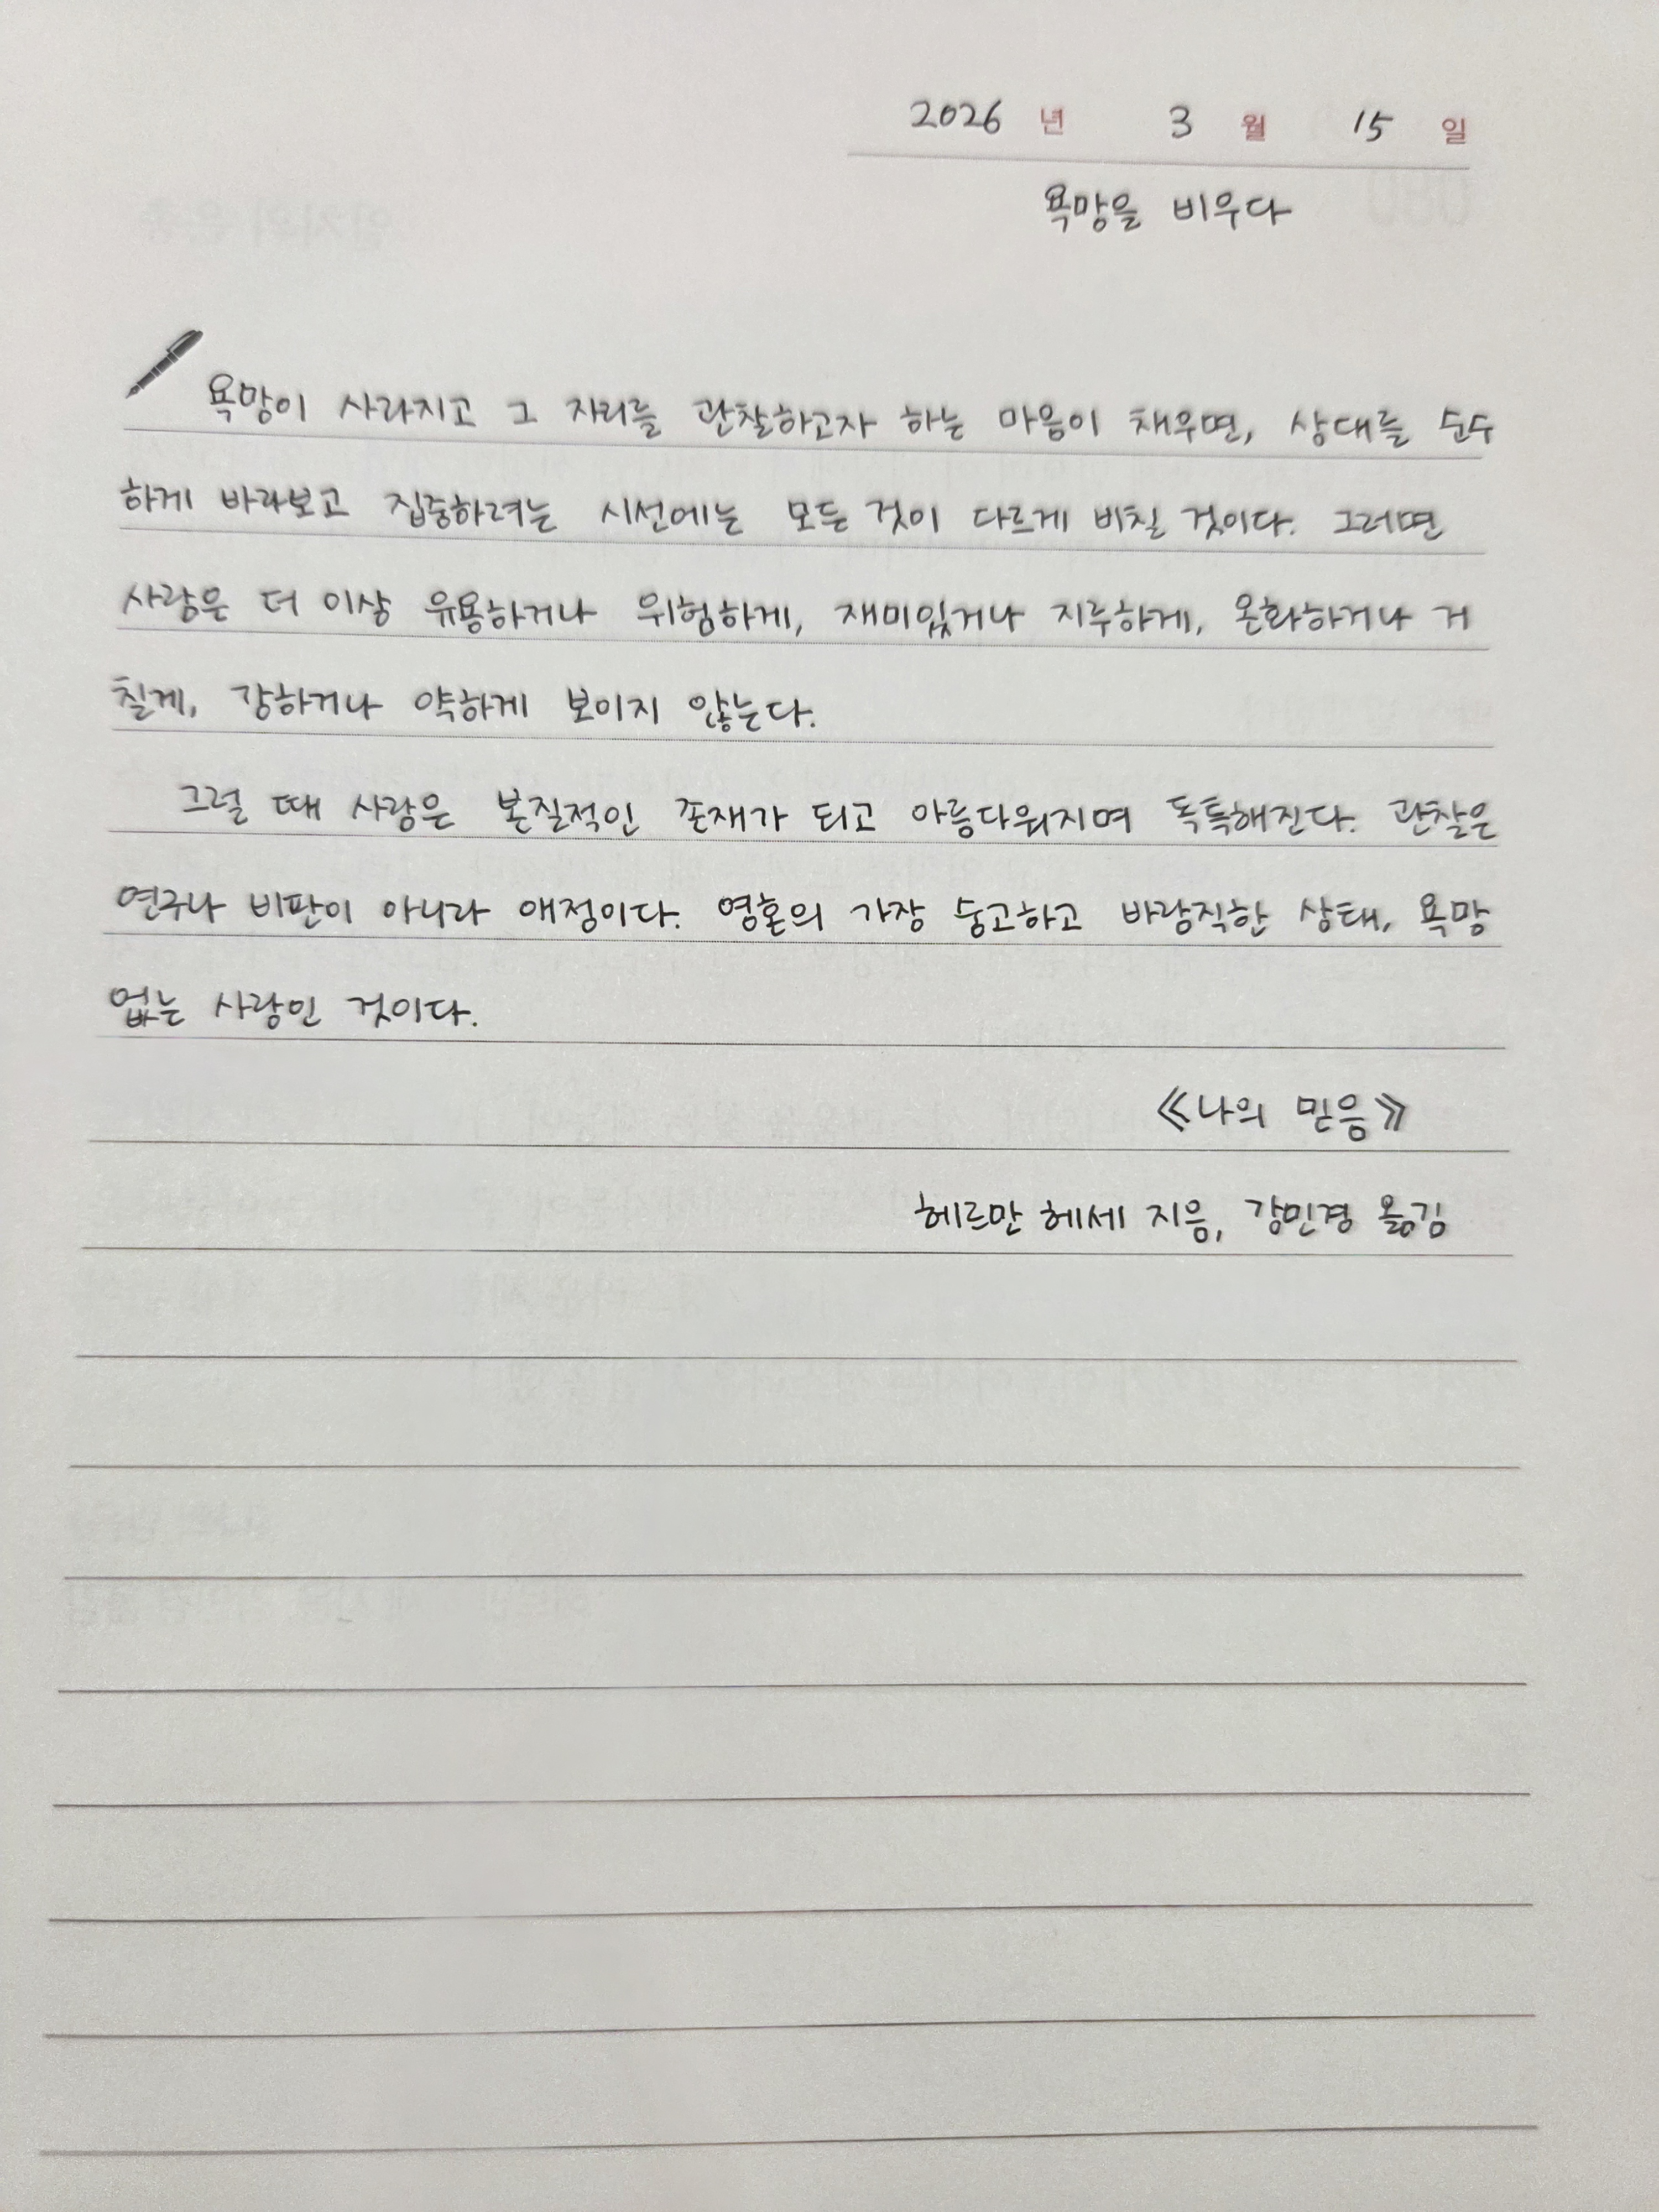 2026 년 3 월 15 일
욕망을 비우다
욕망이 사라지고 그 자리를 관찰하고자 하는 마음이 채우면, 상대를 순수
하게 바라보고 집중하려는 시선에는 모든 것이 다르게 비칠 것이다. 그러면
사랑은 더 이상 유용하거나 위험하게, 재미있거나 지루하게, 온화하거나 거
칠게, 강하거나 약하게 보이지 않는다.
그럴 때 사랑은 본질적인 존재가 되고 아름다워지며 독특해진다. 관찰은
연구나 비판이 아니라 애정이다. 영혼의 가장 숭고하고 바람직한 상태, 욕망
없는 사랑인 것이다.
《나의 믿음》
헤르만 헤세 지음, 강민경 옮김